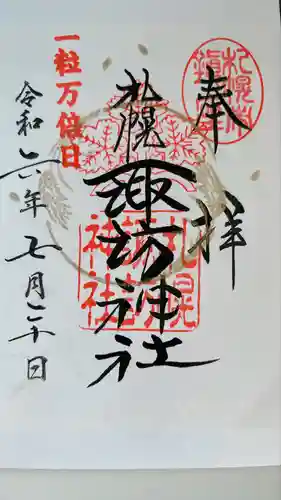 奉拝
札幌
諏訪神社
一粒万倍日
令和六年七月二十日
札幌
諏訪
神社